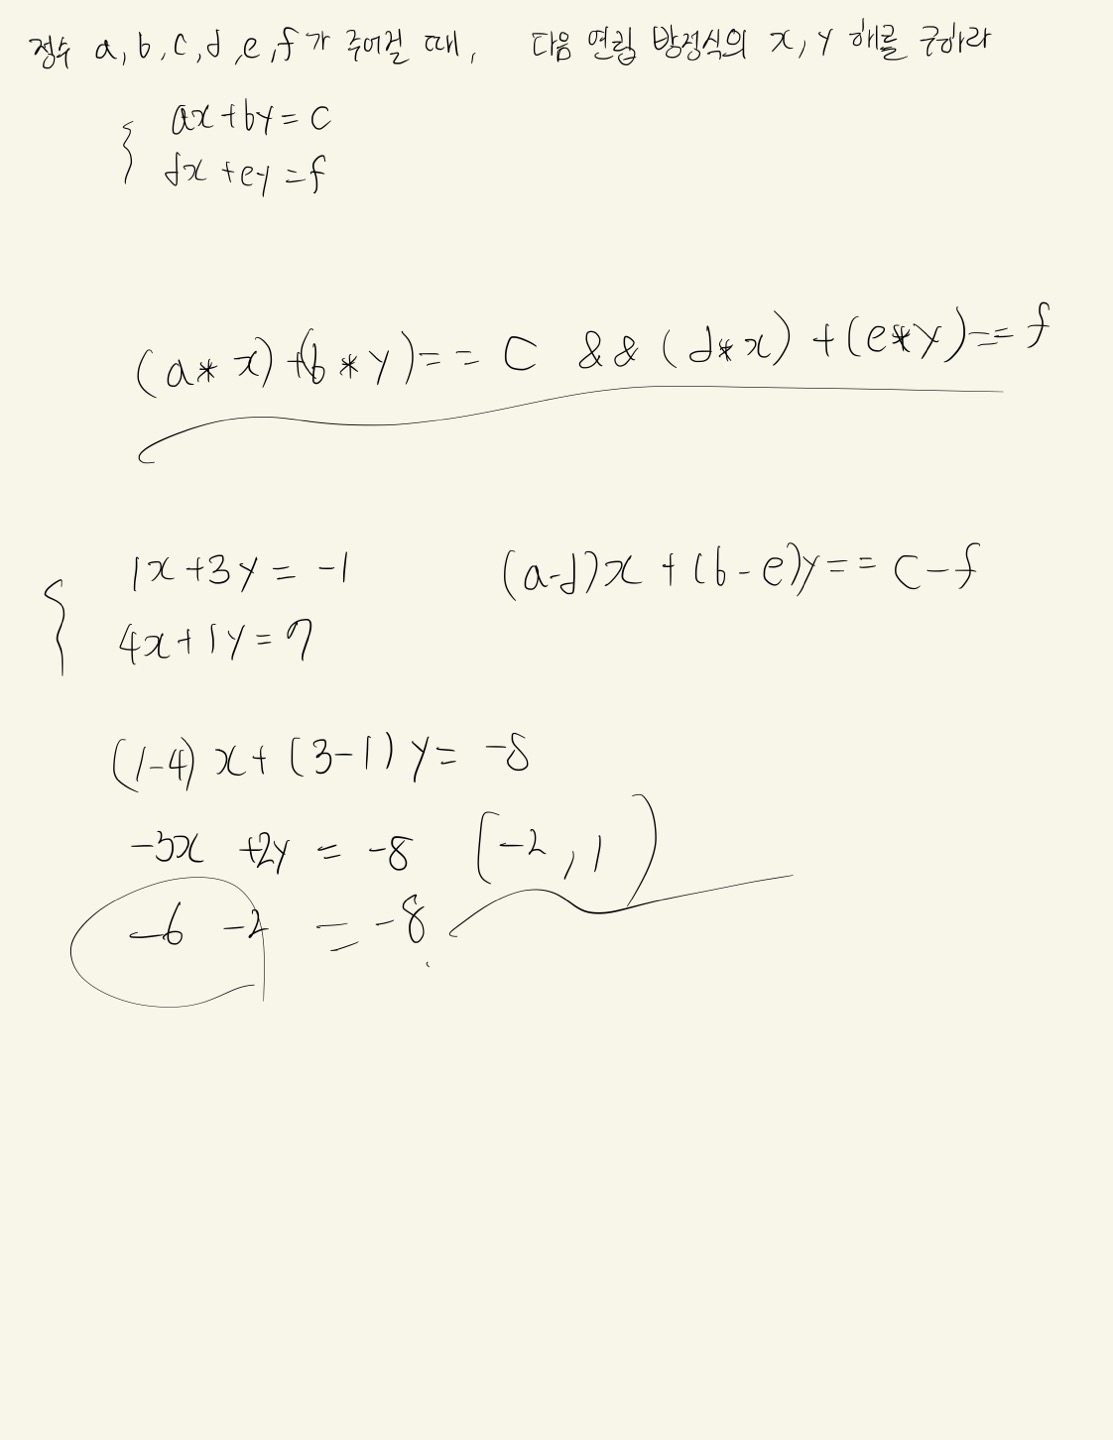 정수 a, b, c, d, e, f가 주어질 때, 다음 연립 방정식의 x, y 해를 구하라
{ ax+by=c
dx+ey=f
(a* x)+(b*y)==C && (d*x)+(e*y)==f
{ 1x+3y=-1
4x+1y=7
(a-d)x+(b-e)y==c-f
(1-4)x+(3-1)y=-8
-3x +2y = -8 (-2, 1)
-6 -2 = -8